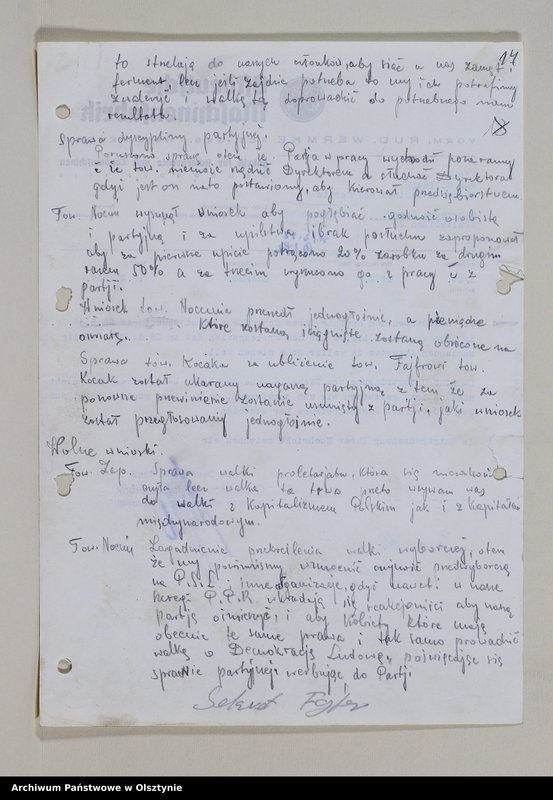 17
to strelają do naszych członków, aby siać w nas zamęt i
ferment, lecz jeśli zajdzie potrzeba to my ich potrafimy
znaleźć i walkę tą doprowadzić do potrzebnego nam
rezultatu.
Sprawa dyscypliny partyjnej.
Poruszono sprawę
że tow. nie może rządzić Dyrektorem a słuchać Dyrektora
gdyż jest on na to postawiony, aby kierował przedsiębiorstwem
Tow. wysunął wniosek aby pogłębiać godność osobistą
i partyjną i za upilstwa i brak posłuchu zaproponował
aby za pierwsze upicie potrącono 20% zarobku za drugim
razem 50% a za trzecim wyrzucono go z pracy i z
partji.
Wniosek tow. przeszedł jednogłośnie, a pieniądze
które zostaną ściągnięte zostaną obrócone na
oświatę.
Sprawa tow. Kocaka za ubliżenie tow. Fajfrowi tow.
Kocak został ukarany naganą partyjną z tem że za
ponowne przewinienie zostanie usunięty z partji, jaki wniosek
został przegłosowany jednogłośnie.
Wolne wnioski.
Tow. Zap. Sprawa walki proletarjatu, która się
lecz walka ta trwa przeto wzywam was
do walki z Kapitalizmem Polskim jak i z Kapitałem
międzynarodowym.
Tow. Zagadnienie przekreślenia walki wyborczej, otem
że my powinniśmy wzmocnić czujność przedwyborczą
na P.S.L i inne organizacje, gdyż nawet w nasze
szeregi P.P.R wkradają się reakcjoniści aby naszą
partję ośmieszyć, i aby kobiety które mają
obecnie te same prawa i tak samo prowadzić
walkę o Demokrację Ludową, poświęcając się
sprawie partyjnej werbując do Partji
Sekret
Archiwum Państwowe w Olsztynie